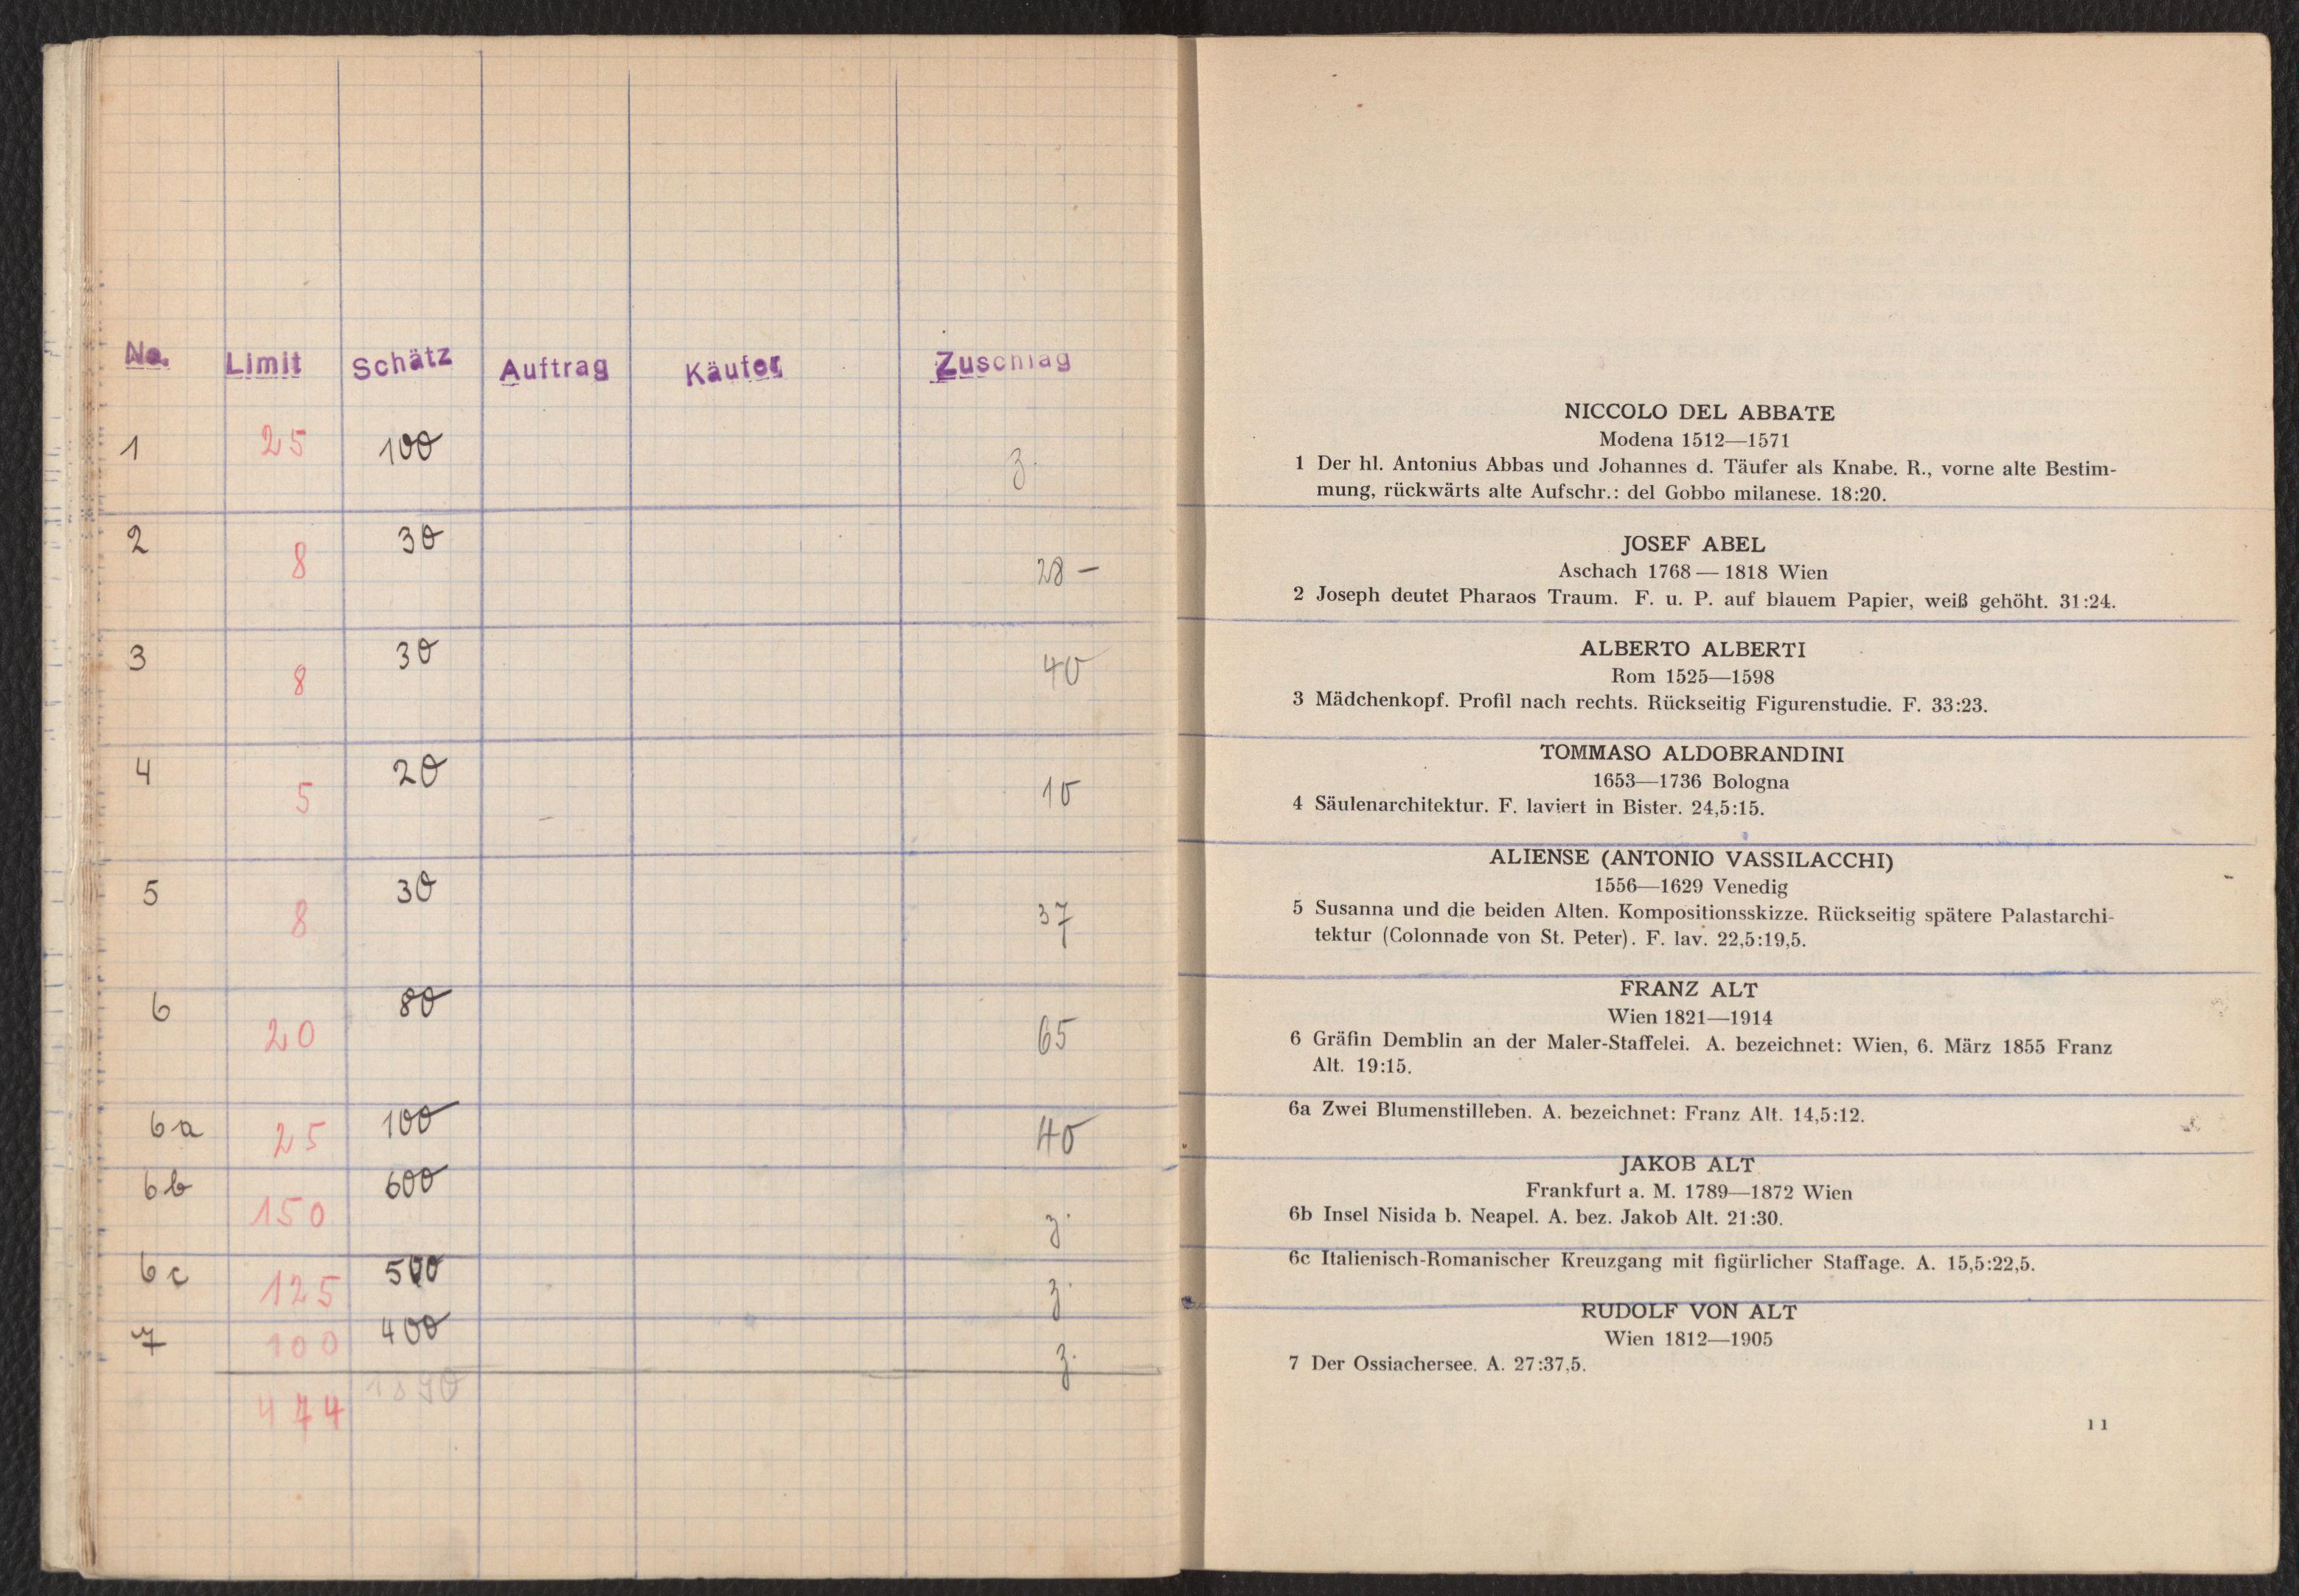 No. Limit Schätz Auftrag Käufer Zuschlag
1 25 100 z.
2 8 30 28 —
3 8 30 40
4 5 20 10
5 8 30 37
6 20 80 65
6a 25 100 40
6b 150 600 z.
6c 125 500 z.
7 100 400 z.
474 1890
NICCOLO DEL ABBATE
Modena 1512—1571
1 Der hl. Antonius Abbas und Johannes d. Täufer als Knabe. R., vorne alte Bestim-
mung, rückwärts alte Aufschr.: del Gobbo milanese. 18:20.
JOSEF ABEL
Aschach 1768 — 1818 Wien
2 Joseph deutet Pharaos Traum. F. u. P. auf blauem Papier, weiß gehöht. 31:24.
ALBERTO ALBERTI
Rom 1525—1598
3 Mädchenkopf. Profil nach rechts. Rückseitig Figurenstudie. F. 33:23.
TOMMASO ALDOBRANDINI
1653—1736 Bologna
4 Säulenarchitektur. F. laviert in Bister. 24,5:15.
ALIENSE (ANTONIO VASSILACCHI)
1556—1629 Venedig
5 Susanna und die beiden Alten. Kompositionsskizze. Rückseitig spätere Palastarchi-
tektur (Colonnade von St. Peter). F. lav. 22,5:19,5.
FRANZ ALT
Wien 1821—1914
6 Gräfin Demblin an der Maler-Staffelei. A. bezeichnet: Wien, 6. März 1855 Franz
Alt. 19:15.
6a Zwei Blumenstilleben. A. bezeichnet: Franz Alt. 14,5:12.
JAKOB ALT
Frankfurt a. M. 1789—1872 Wien
6b Insel Nisida b. Neapel. A. bez. Jakob Alt. 21:30.
6c Italienisch-Romanischer Kreuzgang mit figürlicher Staffage. A. 15,5:22,5.
RUDOLF VON ALT
Wien 1812—1905
7 Der Ossiachersee. A. 27:37,5.
11